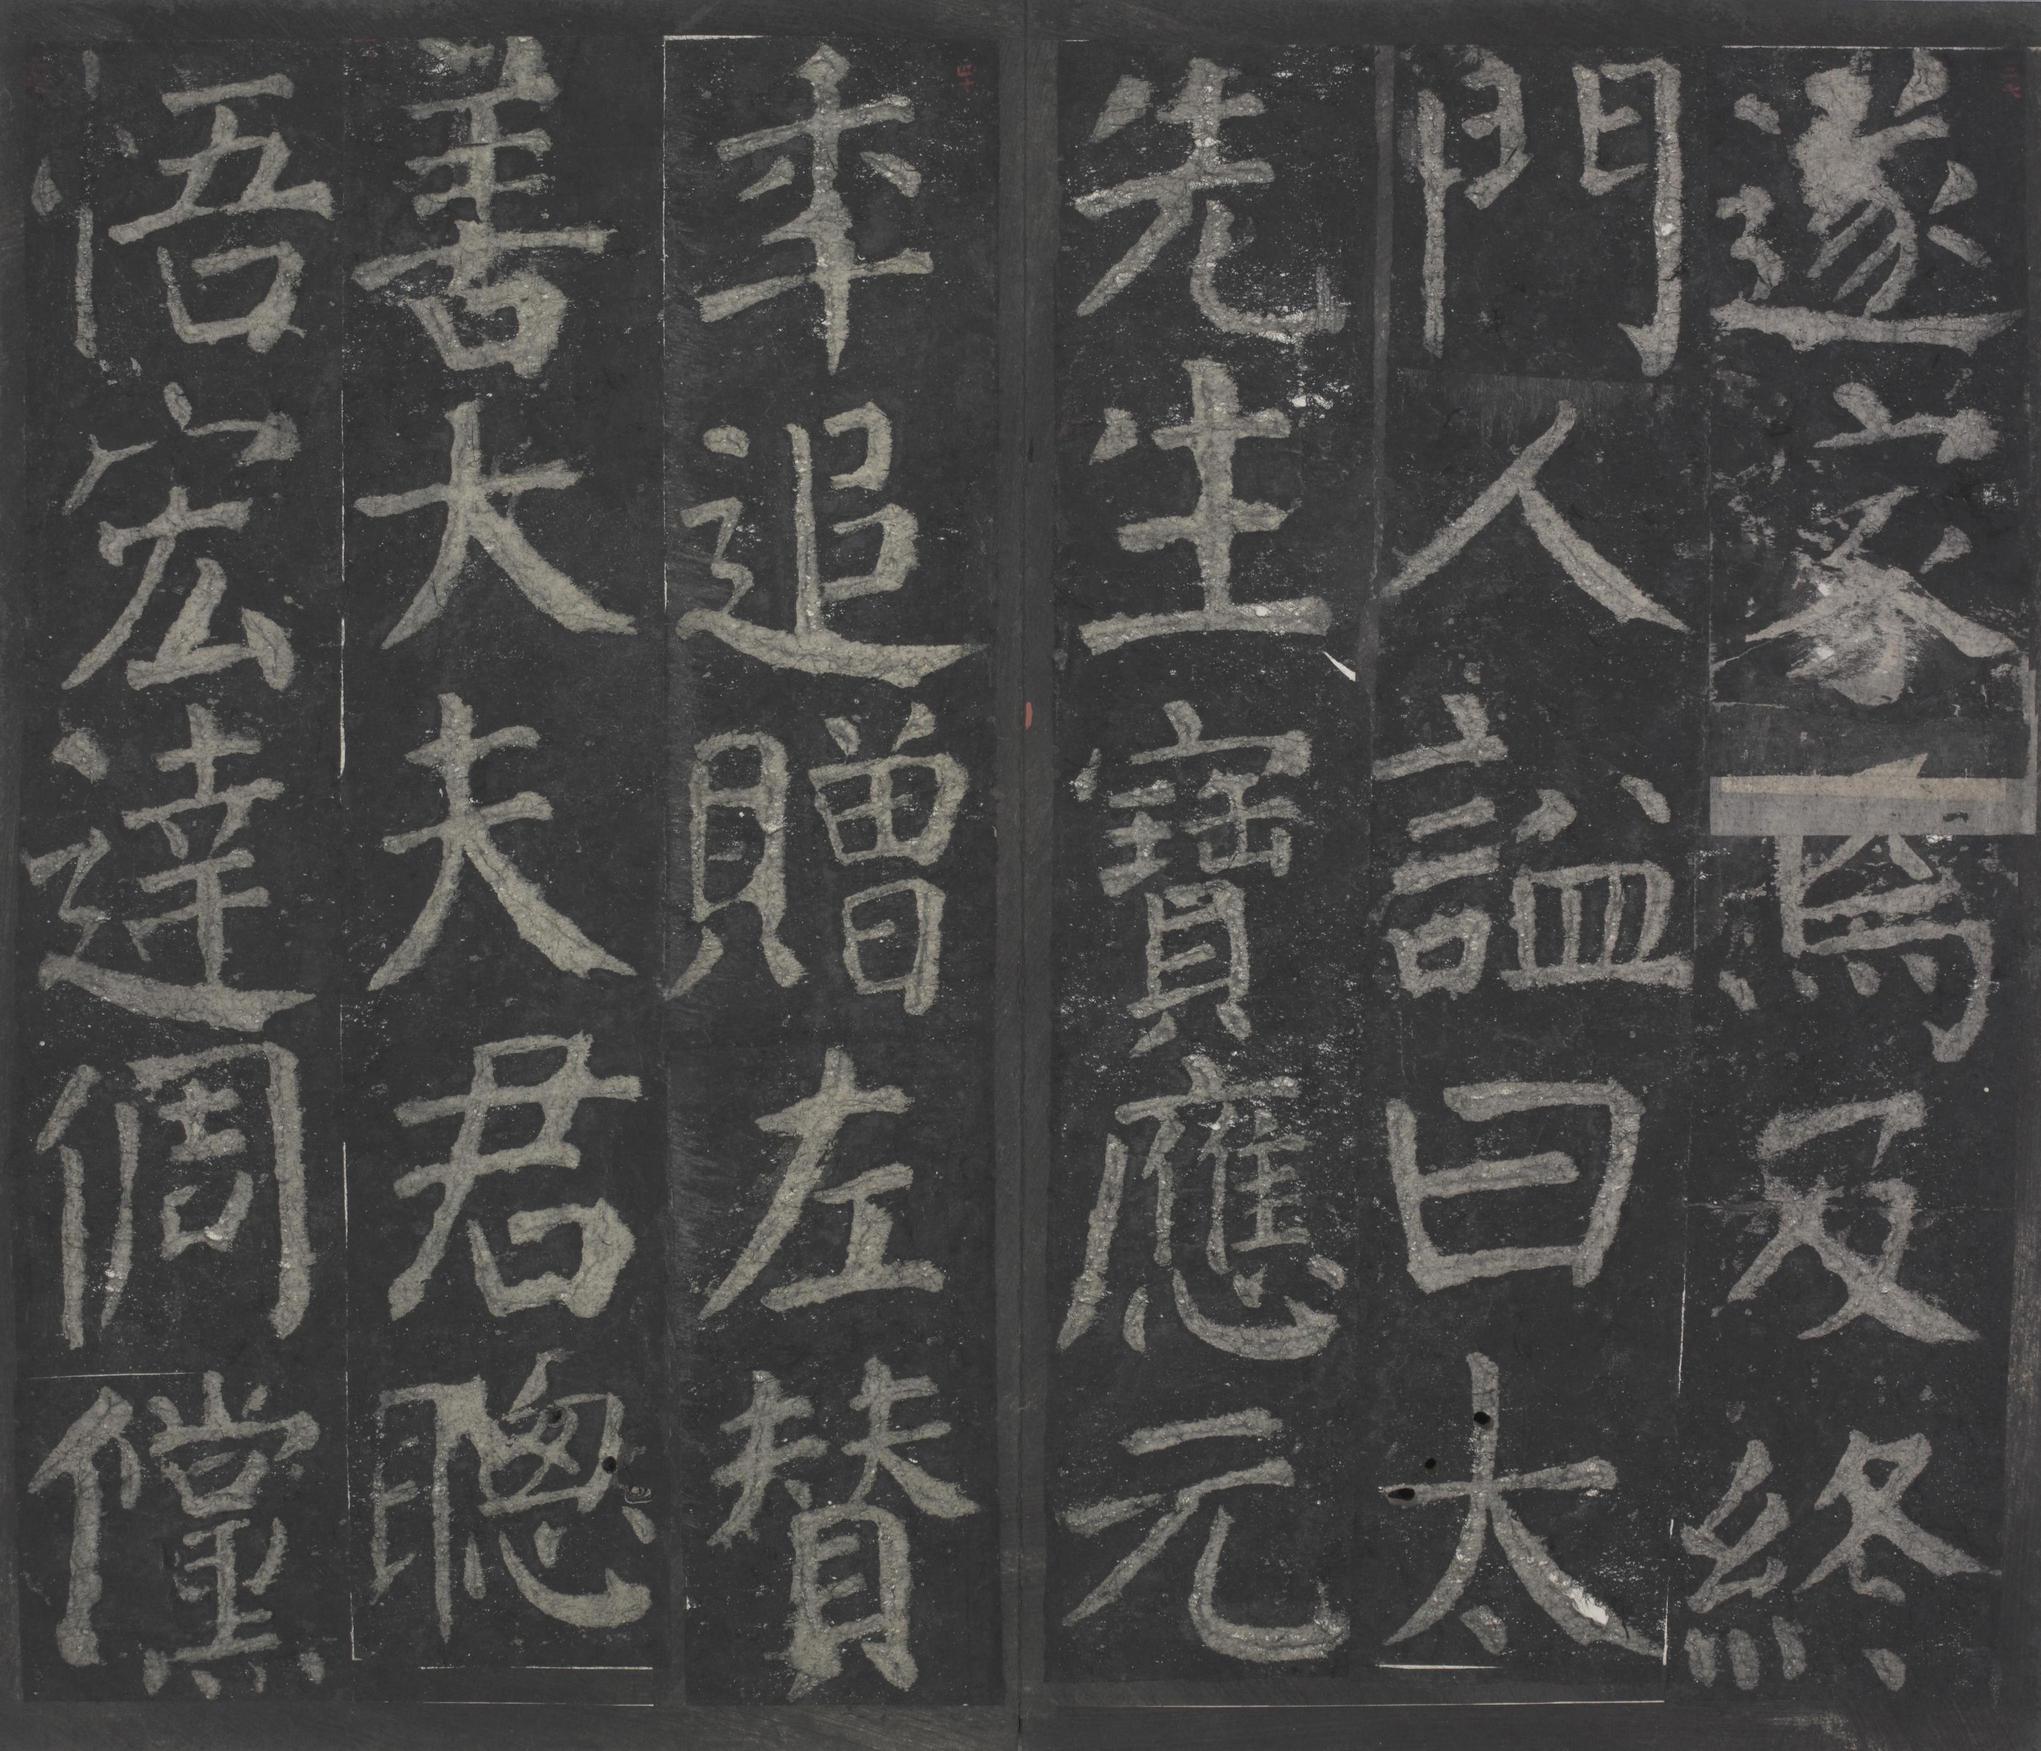 遂家焉及終
門人謚曰太
先生寶應元
年追贈左賛
善大夫君聰
悟宏達倜儻